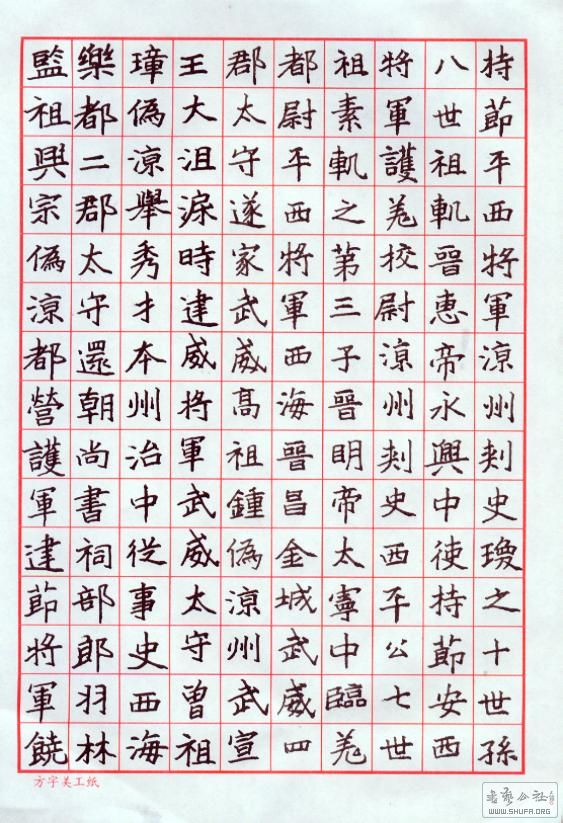 持節平西將軍涼州刺史瓊之十世孫
八世祖軌晉惠帝永興中使持節安西
將軍護羌校尉涼州刺史西平公七世
祖素軌之第三子晉明帝太寧中臨羌
都尉平西將軍西海晉昌金城武威四
郡太守遂家武威高祖鍾偽涼州武宣
王大沮渠時建威將軍武威太守曾祖
璋偽涼舉秀才本州治中從事史西海
樂都二郡太守還朝尚書祠部郎羽林
監祖興宗偽涼都營護軍建節將軍饒
方字美工纸
书艺公社
WWW.SHUFA.ORG